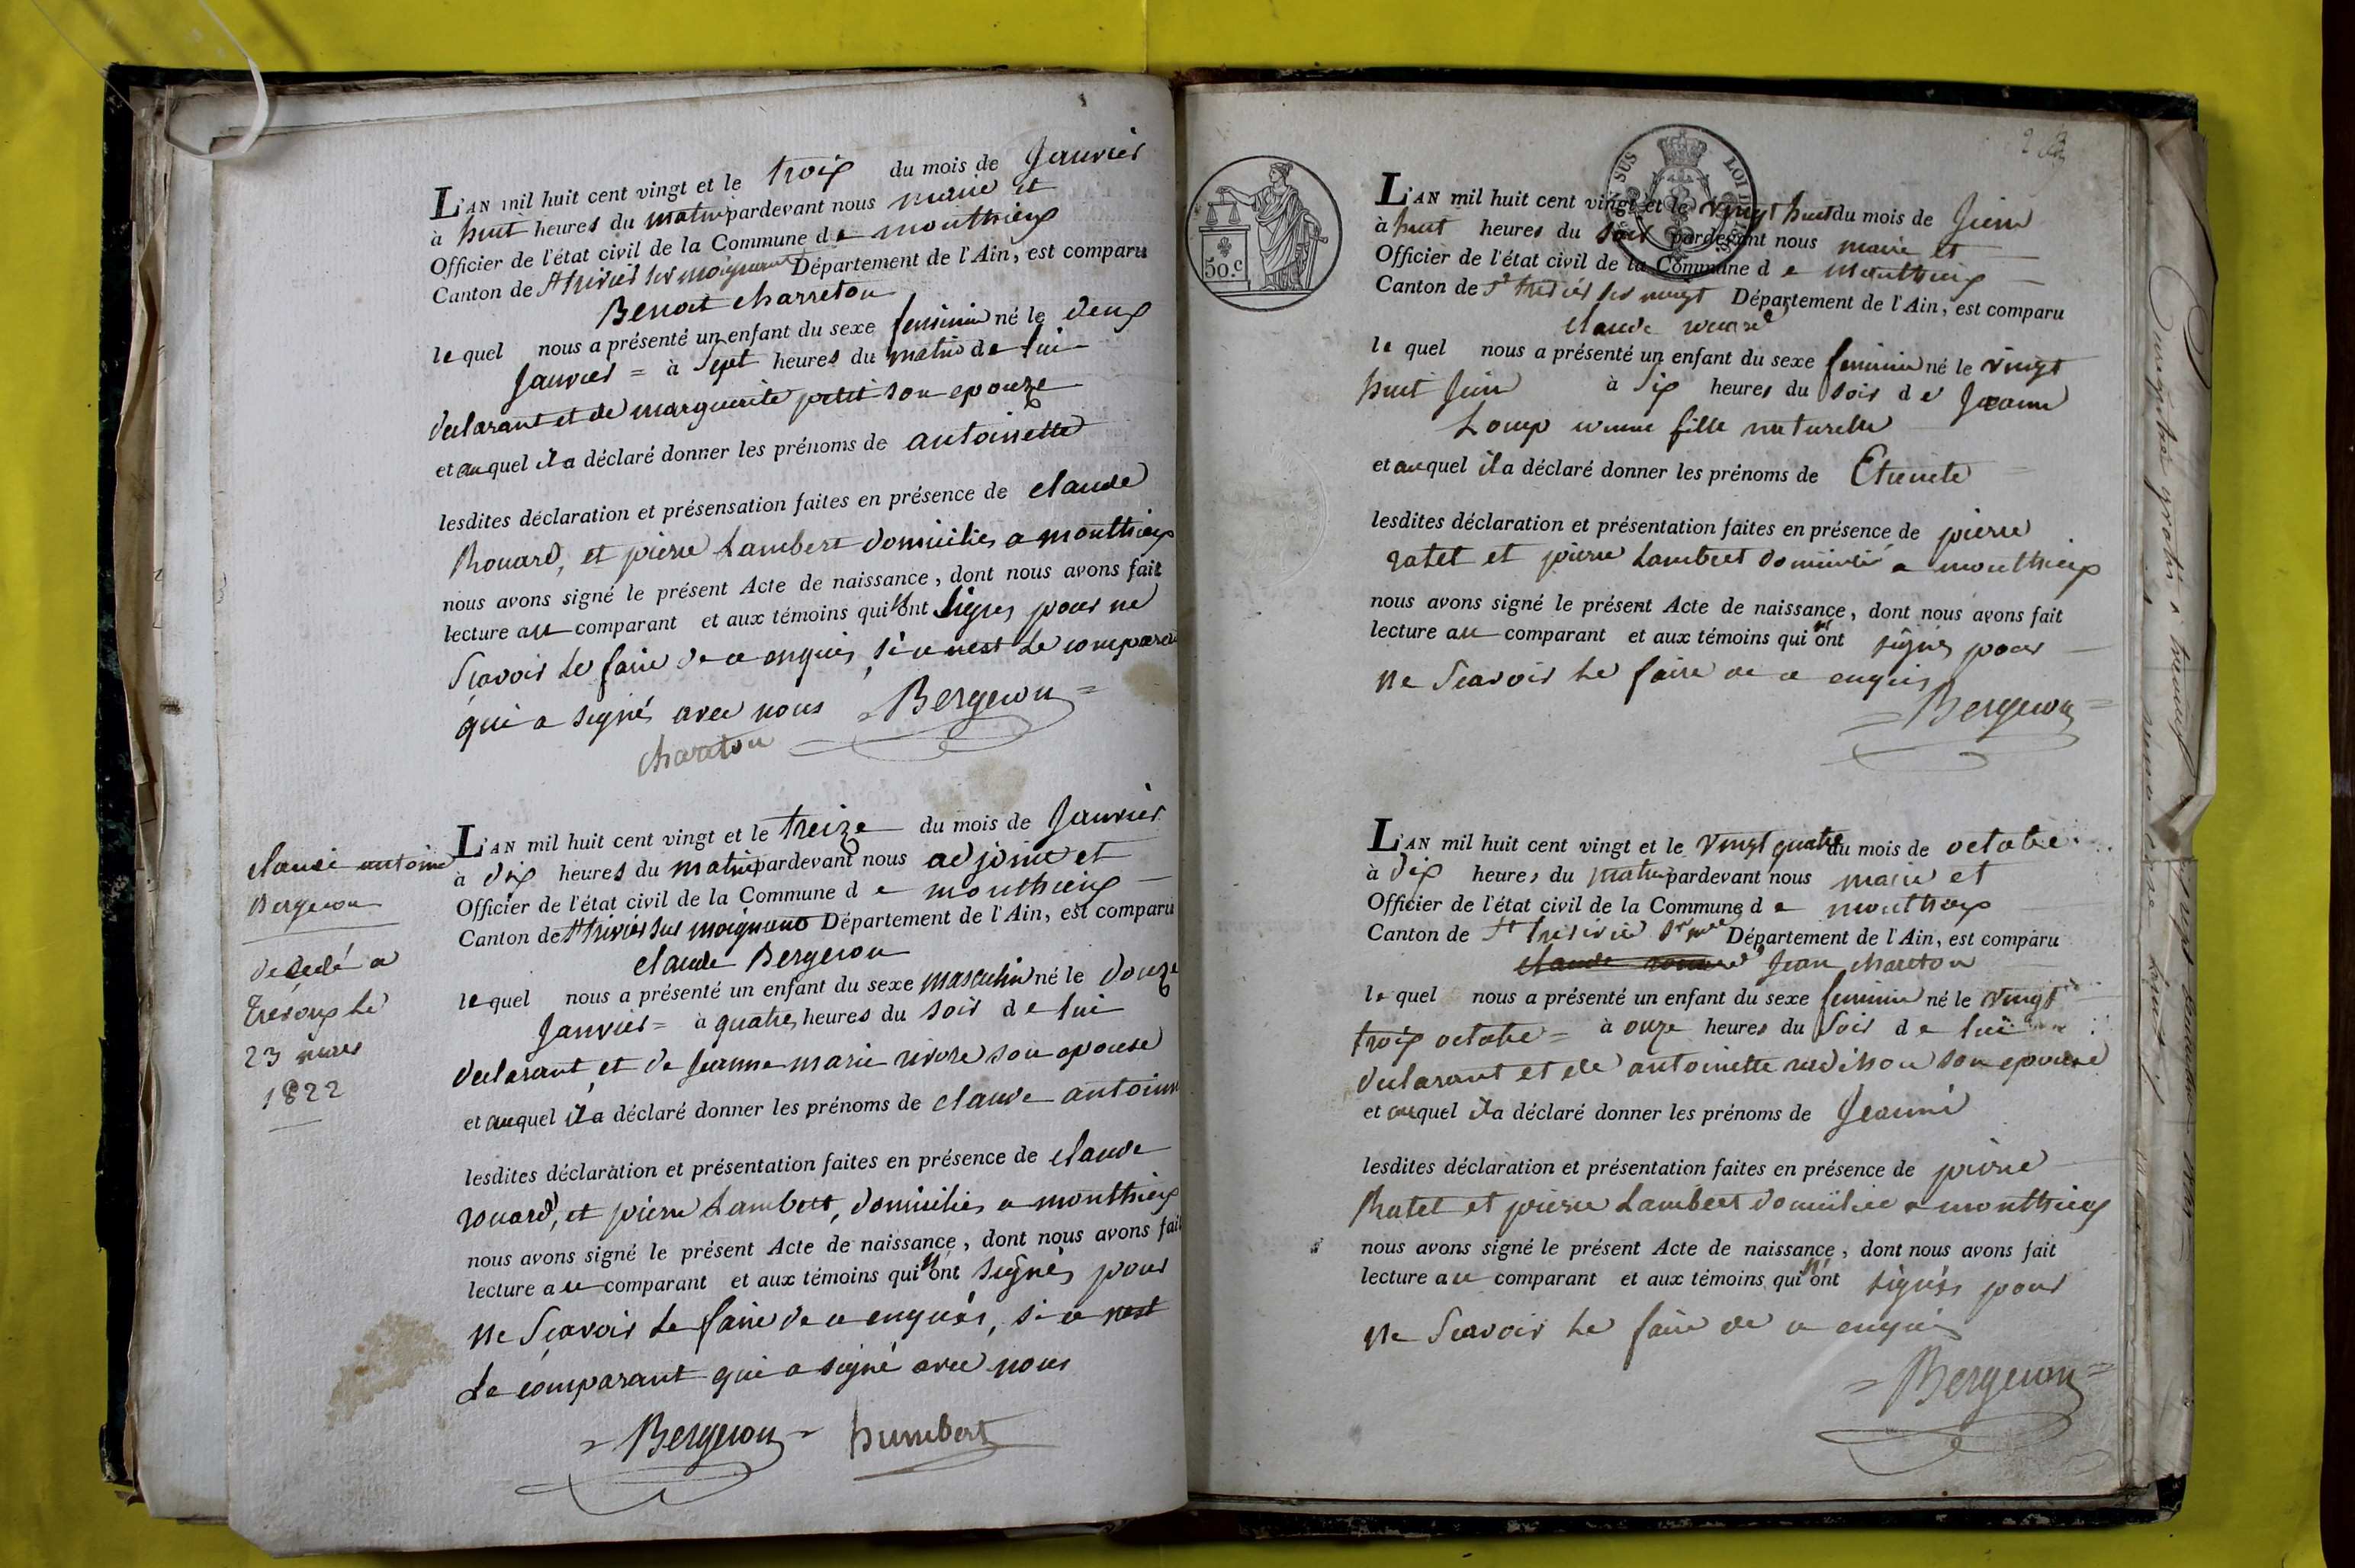 L'AN mil huit cent vingt et le troix du mois de Janvier
à huit heures du matin pardevant nous maire et
Officier de l'état civil de la Commune de monthieux
Canton de St trivier sur moignans Département de l'Ain, est comparu
Benoit charreton
lequel nous a présenté un enfant du sexe feminin né le deux
Janvier = à Sept heures du matin de lui
declarant et de marguerite petit son epouze
et auquel il a déclaré donner les prénoms de antoinette
lesdites déclaration et présensation faites en présence de claude
Rouard, et pierre Lambert domiciliés a monthieux
nous avons signé le présent Acte de naissance, dont nous avons fait
lecture au comparant et aux témoins qui n'ont signes pour ne
Scavoir le faire de ce enquis, si ce nest le comparant
qui a signé avec nous Bergeron
charreton
claude antoine
Bergeron
décédé a
trevoux le
23 mars
1822
L'AN mil huit cent vingt et le treize du mois de Janvier
à dix heures du matin pardevant nous adjoint et
Officier de l'état civil de la Commune de monthieux
Canton de St trivier sur moignans Département de l'Ain, est comparu
claude Bergeron
lequel nous a présenté un enfant du sexe masculin né le douze
Janvier = à quatre heures du soir de lui
declarant, et de jeanne marie rivore son epouse
et auquel il a déclaré donner les prénoms de claude antoine
lesdites déclaration et présentation faites en présence de claude
rouard, et pierre Lambert, domiciliés a monthieux
nous avons signé le présent Acte de naissance, dont nous avons fait
lecture au comparant et aux témoins qui n'ont signés pour
ne Scavoir le faire de ce enquis, si ce nest
le comparant qui a signé avec nous
Bergeron humbert
SUS LOI
50.c
L'AN mil huit cent vingt et le vingt huit du mois de Juin
à huit heures du soir pardevant nous maire et
Officier de l'état civil de la Commune de monthieux
Canton de St trivier sur moigt Département de l'Ain, est comparu
claude rouard
lequel nous a présenté un enfant du sexe feminin né le vingt
huit Juin à Six heures du Soir de Jeanne
Loup une fille naturelle
et auquel il a déclaré donner les prénoms de Etienete
lesdites déclaration et présentation faites en présence de pierre
ratet et pierre Lambert domicilié a monthieux
nous avons signé le présent Acte de naissance, dont nous avons fait
lecture au comparant et aux témoins qui n'ont signés pour
ne Scavoir le faire de ce enquis
Bergeron
L'AN mil huit cent vingt et le vingt quatre du mois de octobre
à dix heures du matin pardevant nous maire et
Officier de l'état civil de la Commune de monthieux
Canton de St trivier Département de l'Ain, est comparu
claude rouard Jean charreton
lequel nous a présenté un enfant du sexe feminin né le vingt
troix octobre = à onze heures du Soir de lui
declarant et de antoinette son epouse
et auquel il a déclaré donner les prénoms de Jeanne
lesdites déclaration et présentation faites en présence de pierre
Ratet et pierre Lambert domicilié a monthieux
nous avons signé le présent Acte de naissance, dont nous avons fait
lecture au comparant et aux témoins qui n'ont signés pour
ne Scavoir le faire de ce enquis
Bergeron